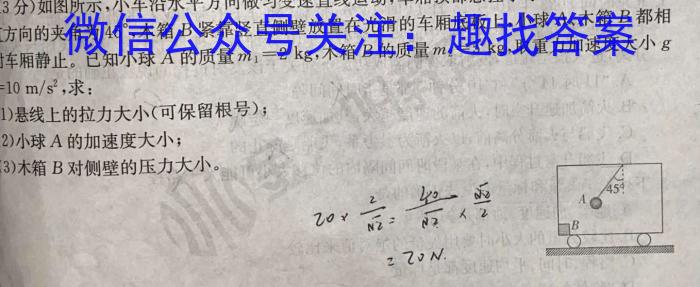 3分)如图所示,小车沿水平方向做匀变速直线运动,车厢顶部悬挂
方向的夹角为 木箱B紧靠竖直侧壁放置在光滑的车厢 上,小球A、木箱B都相
对车厢静止。已知小球A的质量m₁=2 kg,木箱B的质量 kg,取重力加速度大小g
=10 m/s²,求:
1)悬线上的拉力大小(可保留根号);
2)小球A的加速度大小;
(3)木箱B对侧壁的压力大小。
微信公众号关注:趣找答案
20 × 2/√2 = 40/√2 × √2/2
= 20N.
A
45°
B